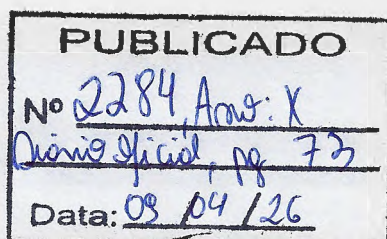 PUBLICADO
Nº 2284, Ano: X
Diário Oficial, pg 73
Data: 09/04/26